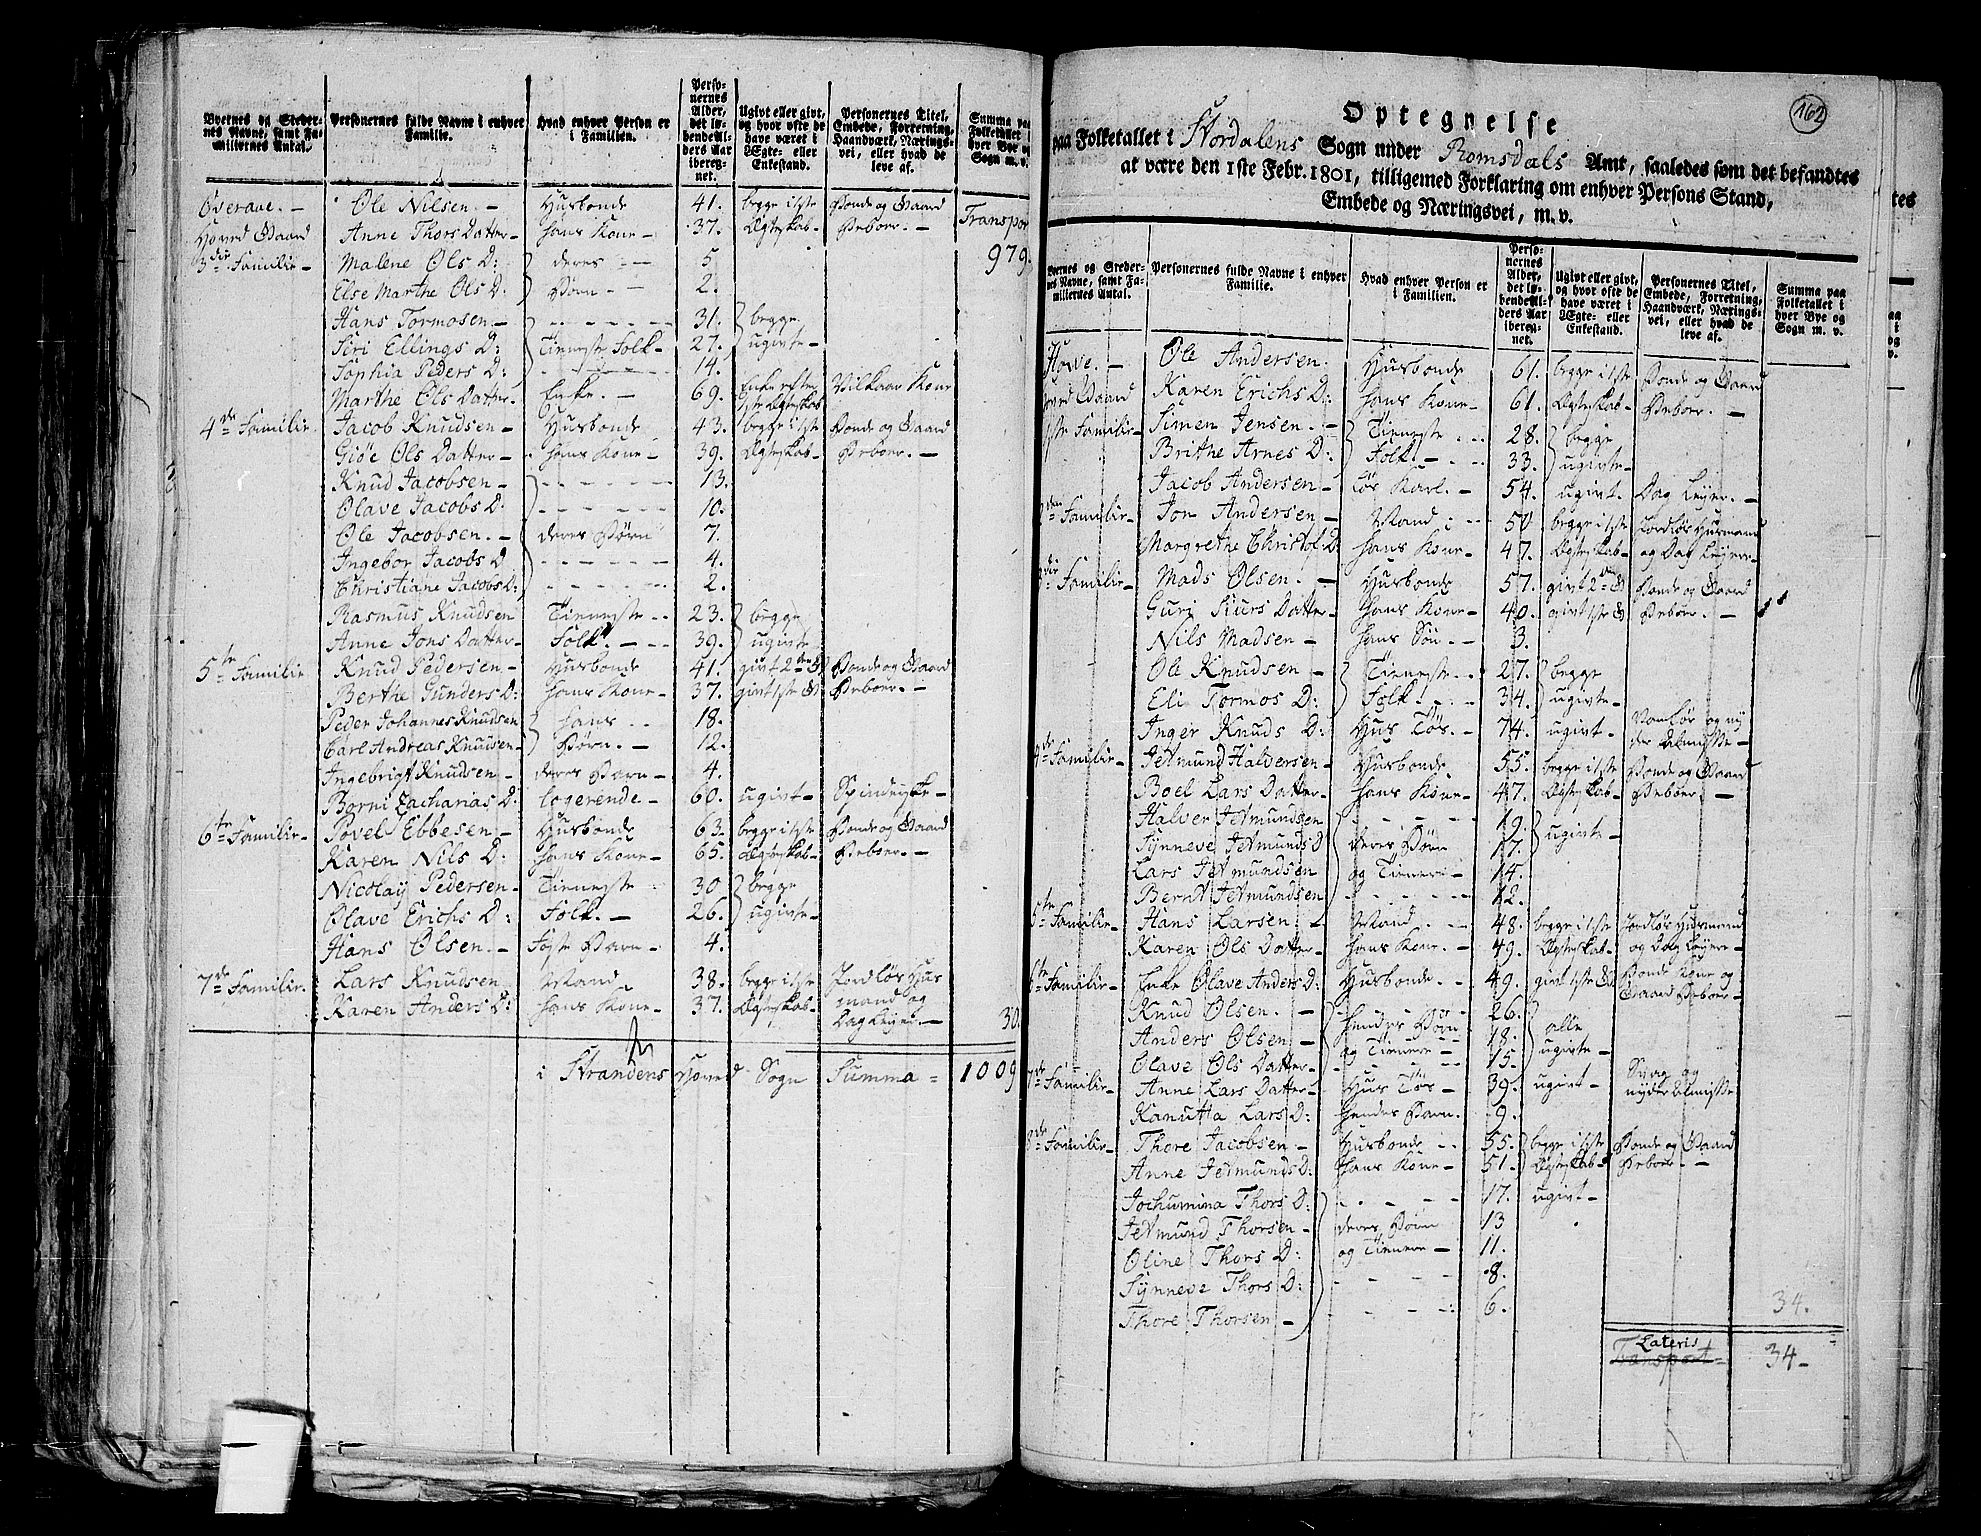 Byernes og Steder-
nes Navne, samt Fa-
miliernes Antal.
Personernes fulde Navne i enhver
Familie.
Hvad enhver Person er
i Familien.
Perso-
nernes
Alder,
det lø-
bende Al-
ders Aar
ibereg-
net.
Ugivt eller givt,
og hvor ofte de
have været i
Ægte- eller
Enkestand.
Personernes Titel,
Embede, Forretning,
Haandværk, Nærings-
vei, eller hvad de
leve af.
Summa paa
Folketallet i
hver Bye og
Sogn m. v.
Overaae. — Ole Nilsen. — Husbonde 41. begge i 1ste Bonde og Gaard
Hoved Gaard Anne Thors Datter — hans Kone — 37. Ægteskab — Beboer. — Transpor
3die Familie — Malene Ols D: deres — 5 979.
Else Marthe Ols D: Børn — 2.
Hans Tormosen — 31. begge
Siri Ellings D: Tieneste Folk — 27. ugivte —
Sophia Peders D: 14.
Marthe Ols Datter. Enke. — 69. Enke efter 1ste Ægteskab Vilkaar Kone
4de Familie. Jacob Knudsen — Husbonde 43. begge i 1ste Bonde og Gaard
Giøe Ols Datter — hans Kone — 39. Ægteskab — Beboer. —
Knud Jacobsen — 13.
Olave Jacobs D: 10.
Ole Jacobsen. — deres Børn 7.
Ingebor Jacobs D 4.
Christiane Jacobs D: 2.
Rasmus Knudsen Tieneste 23. begge
Anne Jons Datter — Folk. — 39. ugivte
5te Familie Knud Pedersen — Husbonde 41. givt 2den G Bonde og Gaard
Berthe Gunders D: hans Kone — 37. givt 1ste G Beboer. —
Peder Johannes Knudsen hans 18.
Carl Andreas Knudsen — Børn. — 12.
Ingebrigt Knudsen — deres Barn — 4.
Borni Zacharias D: logerende — 60. ugivt — Spindeyske
6te Familie — Povel Ebbesen — Husbonde 63. begge i 1ste Bonde og Gaard
Karen Nils D: hans Kone — 65. Ægteskab — Beboer. —
Nicolaij Pedersen — Tieneste 30 begge
Olave Erichs D: Folk. — 26. ugivte —
Hans Olsen. — Foster Barn — 4.
7de Familie. Lars Knudsen Mand 38. begge i 1ste Jordløs Hus
Karen Anders D: hans Kone — 37. Ægteskab — mand og
Dag Leyer. — 30.
i Strandens Hoved Sogn Summa = 1009
162
Optegnelse
paa Folketallet i Stordalens Sogn under Romsdals Amt, saaledes som det befandtes
at være den 1ste Febr. 1801, tilligemed Forklaring om enhver Persons Stand,
Embede og Næringsvei, m. v.
Byernes og Steder-
nes Navne, samt Fa-
miliernes Antal.
Personernes fulde Navne i enhver
Familie.
Hvad enhver Person er
i Familien.
Perso-
nernes
Alder,
det lø-
bende Al-
ders Aar
ibereg-
net.
Ugivt eller givt,
og hvor ofte de
have været i
Ægte- eller
Enkestand.
Personernes Titel,
Embede, Forretning,
Haandværk, Nærings-
vei, eller hvad de
leve af.
Summa paa
Folketallet i
hver Bye og
Sogn m. v.
Hove. — Ole Andersen. Husbonde 61. begge i 1ste Bonde og Gaard
oved Gaard Karen Erichs D: hans Kone — 61. Ægteskab — Beboer. —
1ste Familie — Simen Jensen. — Tieneste 28. begge
Brithe Arnes D: Folk. — 33. ugivte —
Jacob Andersen — Løs Karl. — 54. ugivt. Dag Leyer. —
den Familie — Jon Andersen — Mand 50 begge i 1ste Jordløs Husmand
Margrethe Christof D: hans Kone — 47. Ægteskab — og Dag Leyer —
die Familie — Mads Olsen. — Husbonde 57. givt 2den G Bonde og Gaard
Guri Siurs Datter — hans Kone — 40. givt 1ste G Beboer. —
Nils Madsen — hans Søn. — 3.
Ole Knudsen — Tieneste 27. begge
Eli Tormos D: Folk. 34. ugivte —
Inger Knuds D: Hus Løs. — 74. ugivt. Vanfør og ny
4de Familie — Jetmund Halversen — Husbonde. 55. begge i 1ste der Almisse —
Boel Lars Datter — hans Kone — 47. Ægteskab — Bonde og Gaard Beboer. —
Halver Jetmundsen 19.
Synneve Jetmunds D deres Børn 17. ugivte —
Lars Jetmundsen og Tienere — 14.
Bernt Jetmundsen 12.
5te Familie — Hans Larsen — Mand 48. begge i 1ste Jordløs Husmand
Karen Ols Datter — hans Kone. — 49. Ægteskab — og Dag Leyer —
6te Familie — Enke Olave Anders D: Husbonde. 49. givt 1ste G Bonde Kone og
Knud Olsen. — 26. Gaard Beboer —
Anders Olsen — hendes Børn 18. alle
Olave Ols Datter — og Tienere — 15. ugivte —
7de Familie — Anne Lars Datter — Hus Løs — 39. ugivt — Svag og
Kanutta Lars D: hendes Barn. 9. nyder Almisse
8de Familie — Thore Jacobsen — Husbonde 55. begge i 1ste Bonde og Gaard
Anne Jetmunds D: hans Kone — 51. Ægteskab — Beboer. —
Jochumina Thors D: 17. ugivt —
Jetmund Thorsen — deres Børn 13
Oline Thors D: og Tienere — 11.
Synneve Thors D: 8.
Thore Thorsen — 6.
34.
Lateris
Transport = 34 —